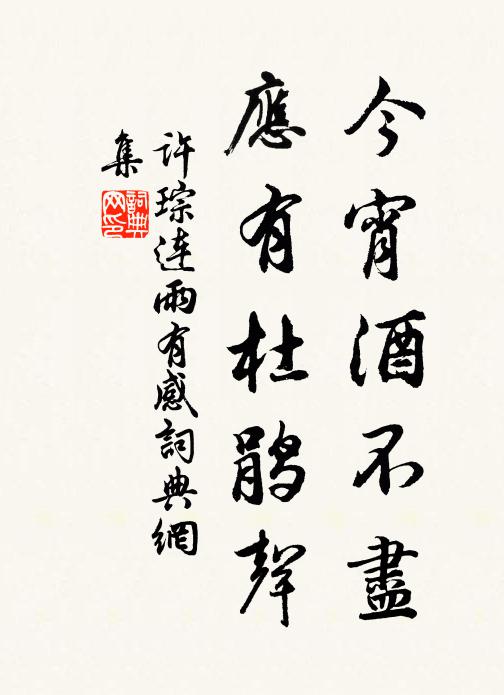 今宵酒不盡
應有杜鵑聲
許琮连雨有感詞典網
集
詞典
网印